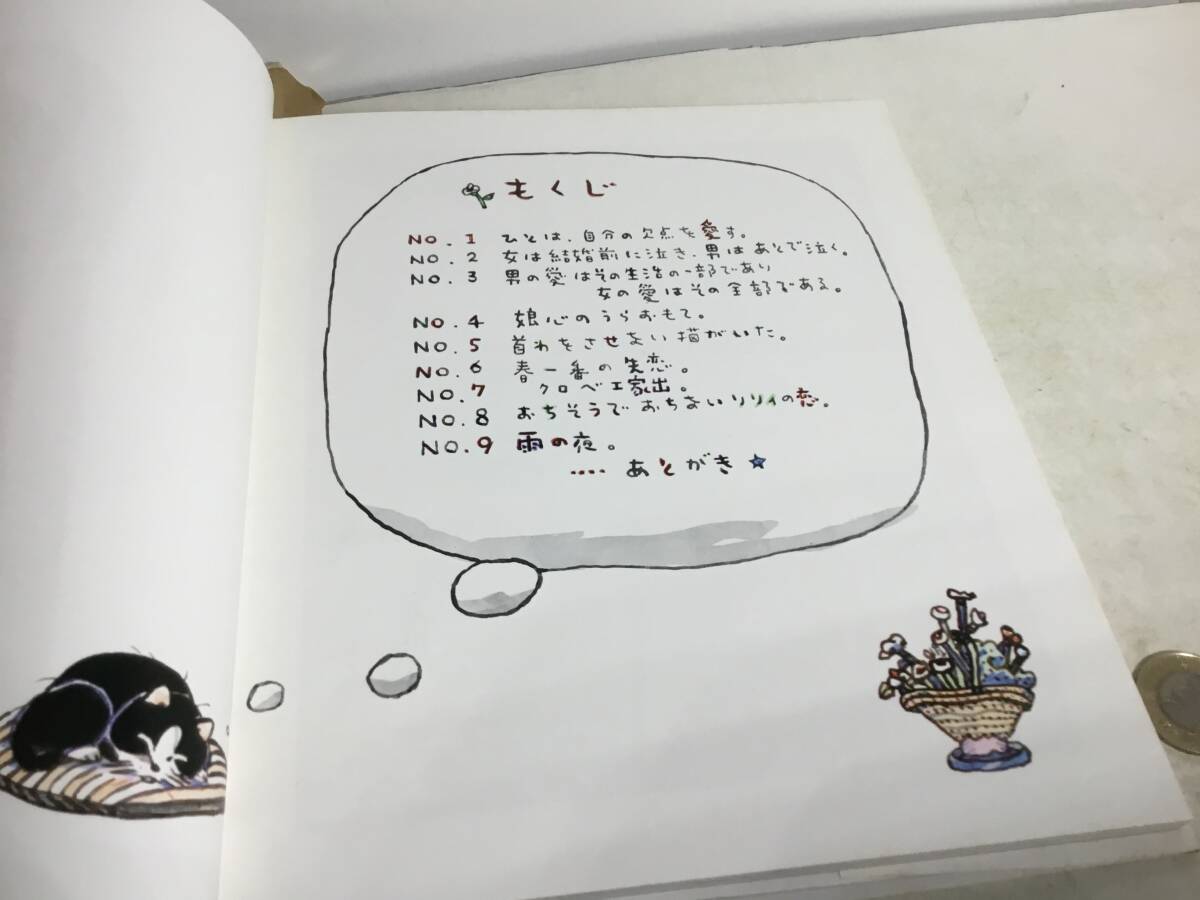 もくじ
NO.1 ひとは、自分の欠点を愛す。
NO.2 女は結婚前に泣き、男はあとで泣く。
NO.3 男の愛はその生活の一部であり
女の愛はその全部である。
NO.4 娘心のうらおもて。
NO.5 首わをさせない猫がいた。
NO.6 春一番の失恋。
NO.7 クロベエ家出。
NO.8 おちそうでおちないリリィの恋。
NO.9 雨の夜。
‥‥あとがき★